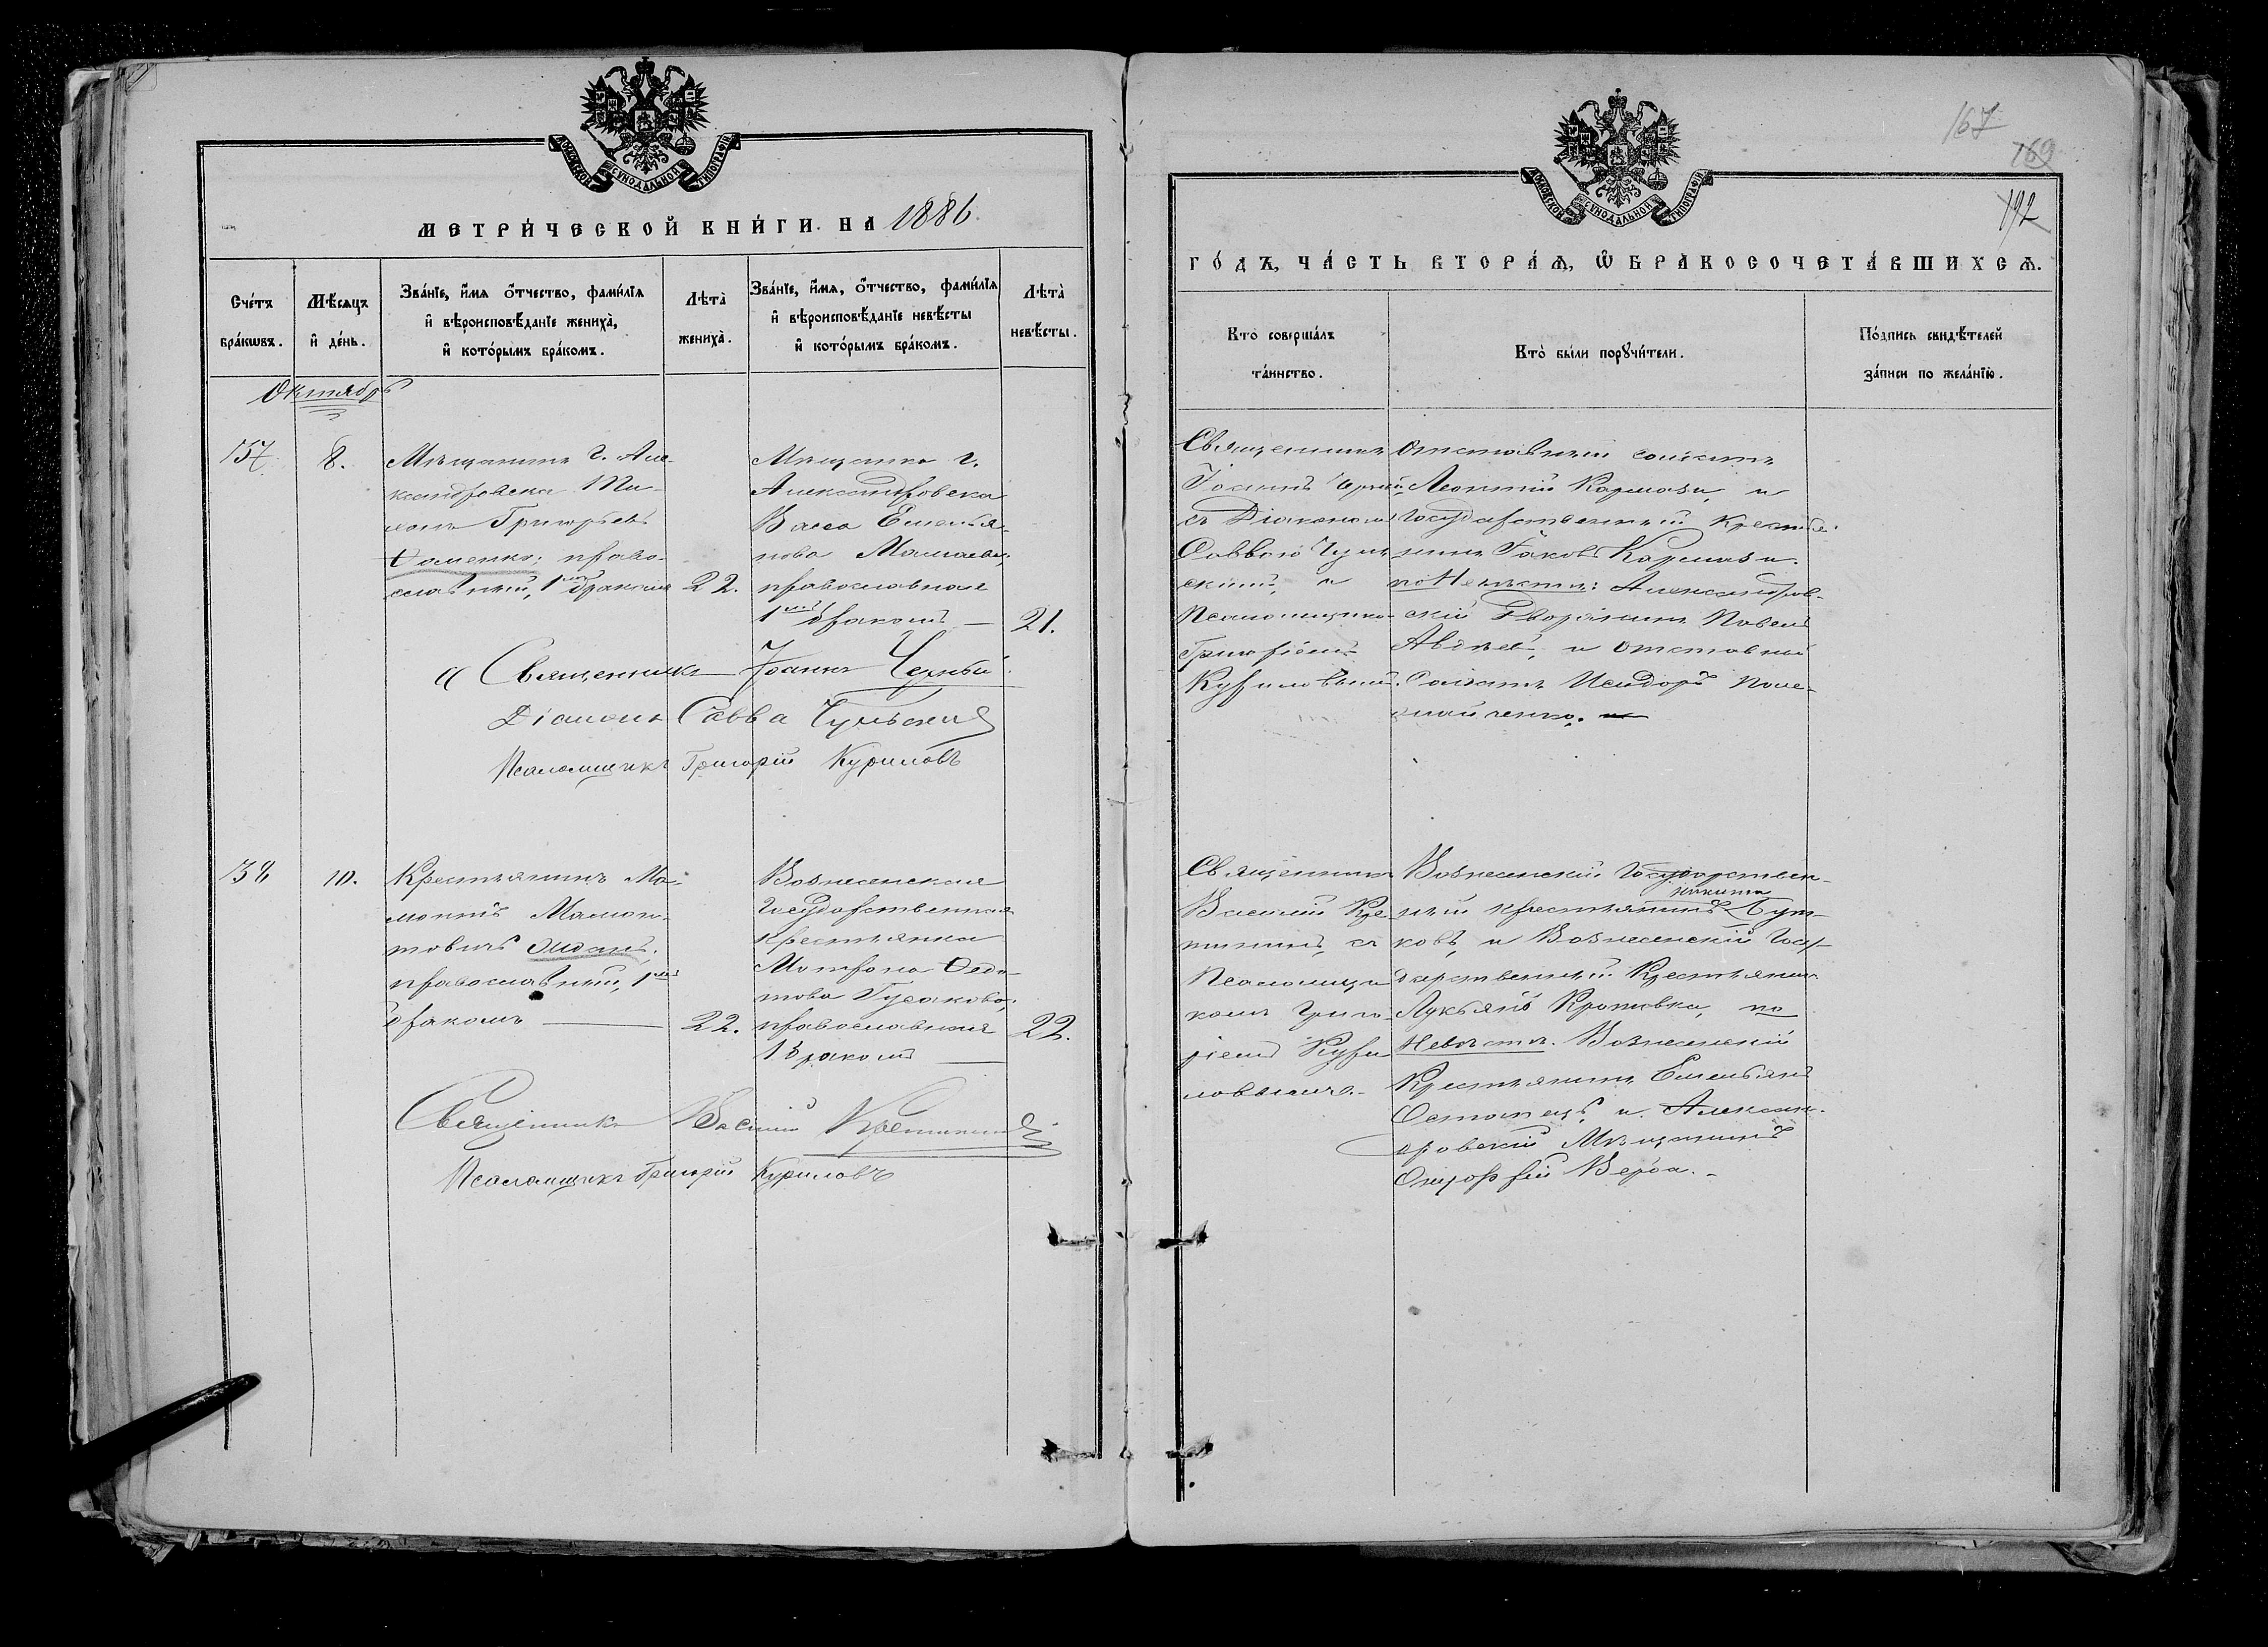 МОСКОВСКОЙ СѴНОДАЛЬНОЙ ТИПОГРАФІИ
МЕТРИ́ЧЕСКОЙ КНИ́ГИ НА 1886
Сче́тъ бра́кωвъ.
Мѣ́сяцъ и҆ де́нь.
Зва́нїе, и҆́мя ѻ҆́тчество, фами́лїя
и҆ вѣроисповѣ́данїе жениха̀,
и҆ кото́рымъ бра́комъ.
Лѣта̀ жениха̀.
Зва́нїе, и҆́мя, ѻ҆́тчество, фами́лїя
и҆ вѣроисповѣ́данїе невѣ́сты
и҆ кото́рымъ бра́комъ.
Лѣта̀ невѣ́сты.
Октябрь
37
8.
Мѣщанинъ г. Але-
ксандровска
Григорьевъ
Ѳоменко; право-
славный, 1мъ бракомъ
22.
Мѣщанка г.
Александровска
Васса Емелья-
нова
православная
1мъ бракомъ —
21.
Священникъ Іоаннъ Черный
Діаконъ Савва Чульскій
Псаломщикъ Григорій Куриловъ
38
10.
Крестьянинъ Ма-
монтъ Мамон-
товичъ
православный, 1мъ
бракомъ —
22.
Вознесенская
Государственная
крестьянка
Мотрона Ѳедо-
това Гусакова;
православная
1 бракомъ
22.
Священникъ Василій
Псаломщикъ Григорій Куриловъ
167
169
192
МОСКОВСКОЙ СѴНОДАЛЬНОЙ ТИПОГРАФІИ
ГО́ДЪ, ЧА́СТЬ ВТОРА́Ѧ, Ѽ БРАКОСОЧЕТА́ВШИХСѦ.
Кто̀ соверша́лъ
та́инство.
Кто̀ бы́ли порꙋчи́тели.
По́дпись свидѣ́телей
за́писи по жела́нїю.
Священникъ
Іоаннъ Черный,
съ Діакономъ
Саввою Чуль-
скимъ, и
Псаломщико-
Григоріемъ
Куриловымъ.
Отставный солдатъ
Леонтій Кармази, и
Государственный Крестья-
нинъ Іаковъ Кармази.
по Невѣстѣ: Александров-
скій Дворянинъ Павелъ
и отставной
Солдатъ Исидоръ
Священникъ
Василій
съ
Псаломщи
комъ Григо-
ріемъ Кури
ловымъ.-
Вознесенскій Государствен-
Никита
ный крестьянинъ
ковъ, и Вознесенскій Госу-
дарственный Крестьянинъ
Лукьянъ по
Невѣстѣ. Вознесенскій
Крестьянинъ Емельянъ
Остапецъ, и Алексан-
дровскій Мѣщанинъ